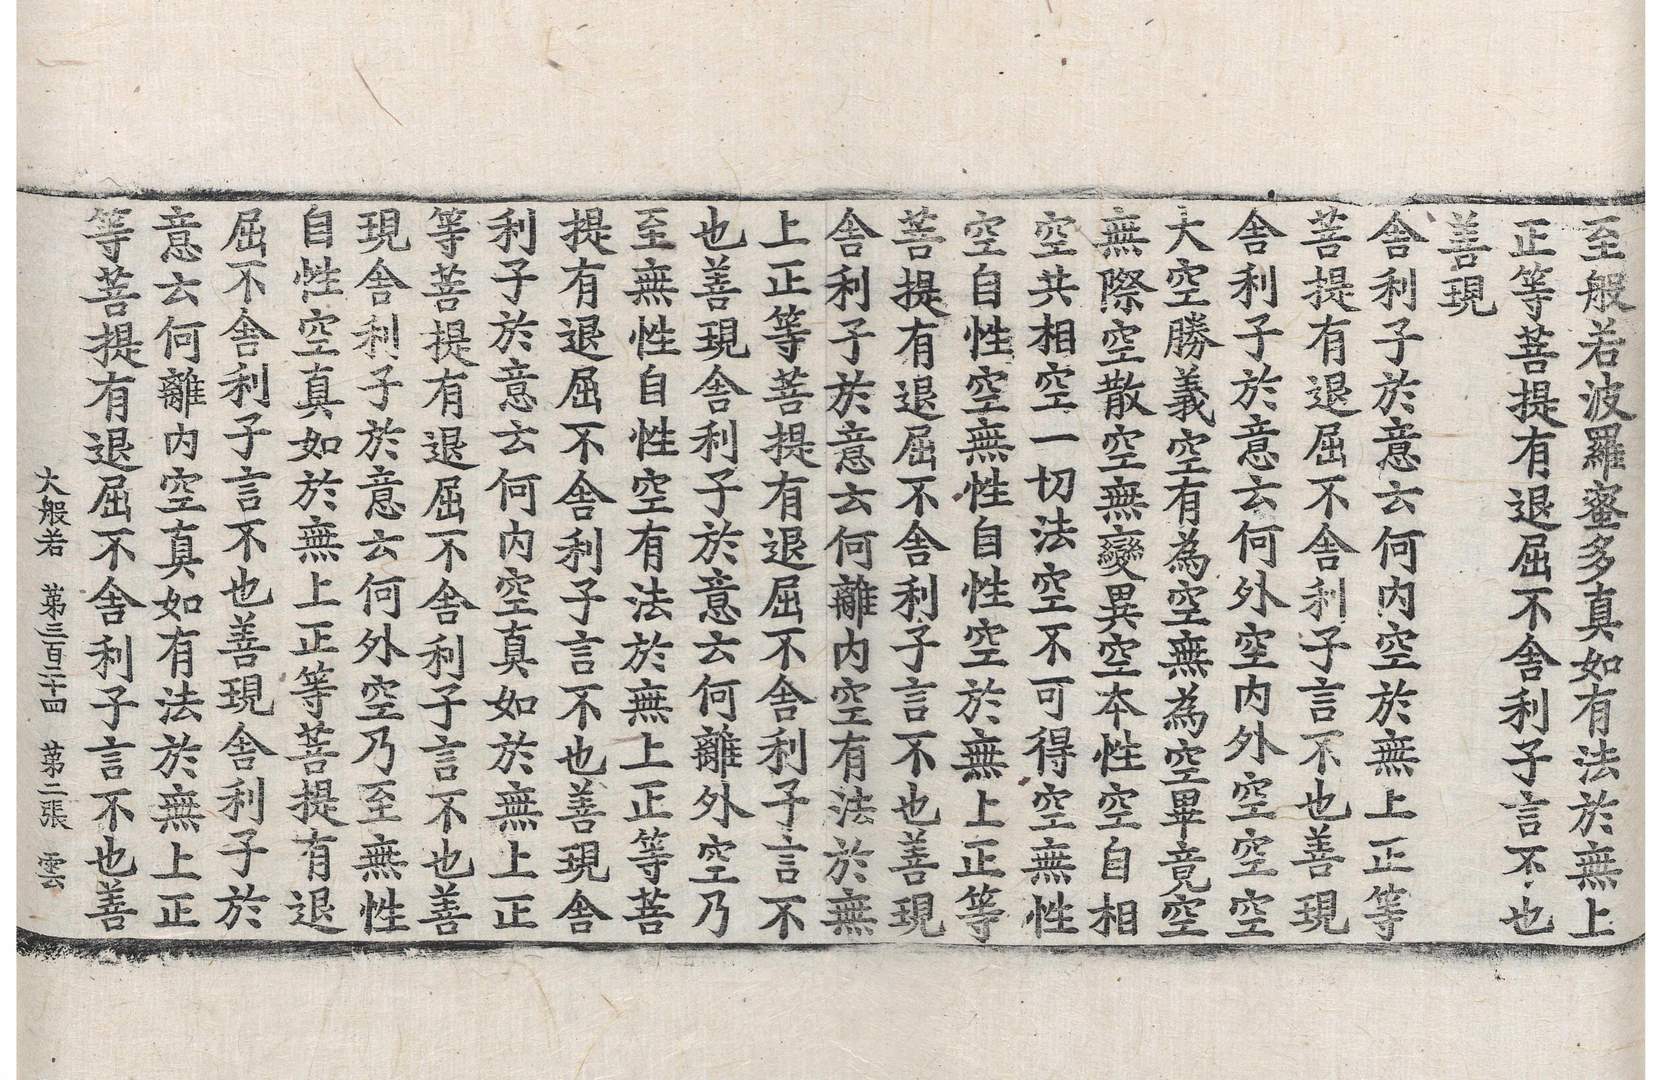 至般若波羅蜜多真如有法於無上
正等菩提有退屈不舍利子言不也
善現
舍利子於意云何内空於無上正等
菩提有退屈不舍利子言不也善現
舍利子於意云何外空内外空空空
大空勝義空有為空無為空畢竟空
無際空散空無變異空本性空自相
空共相空一切法空不可得空無性
空自性空無性自性空於無上正等
菩提有退屈不舍利子言不也善現
舍利子於意云何離内空有法於無
上正等菩提有退屈不舍利子言不
也善現舍利子於意云何離外空乃
至無性自性空有法於無上正等菩
提有退屈不舍利子言不也善現舍
利子於意云何内空真如於無上正
等菩提有退屈不舍利子言不也善
現舍利子於意云何外空乃至無性
自性空真如於無上正等菩提有退
屈不舍利子言不也善現舍利子於
意云何離内空真如有法於無上正
等菩提有退屈不舍利子言不也善
大般若 第三百二十四 第二張 雲